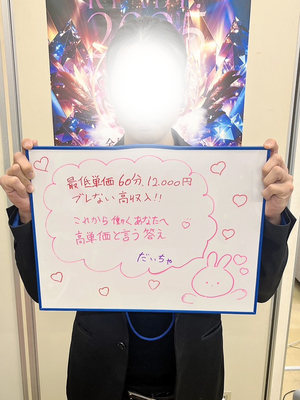 2025
最低単価60分、12.000円
ブレない高収入!!
これから働くあなたへ
高単価と言う答え
だいちゃ